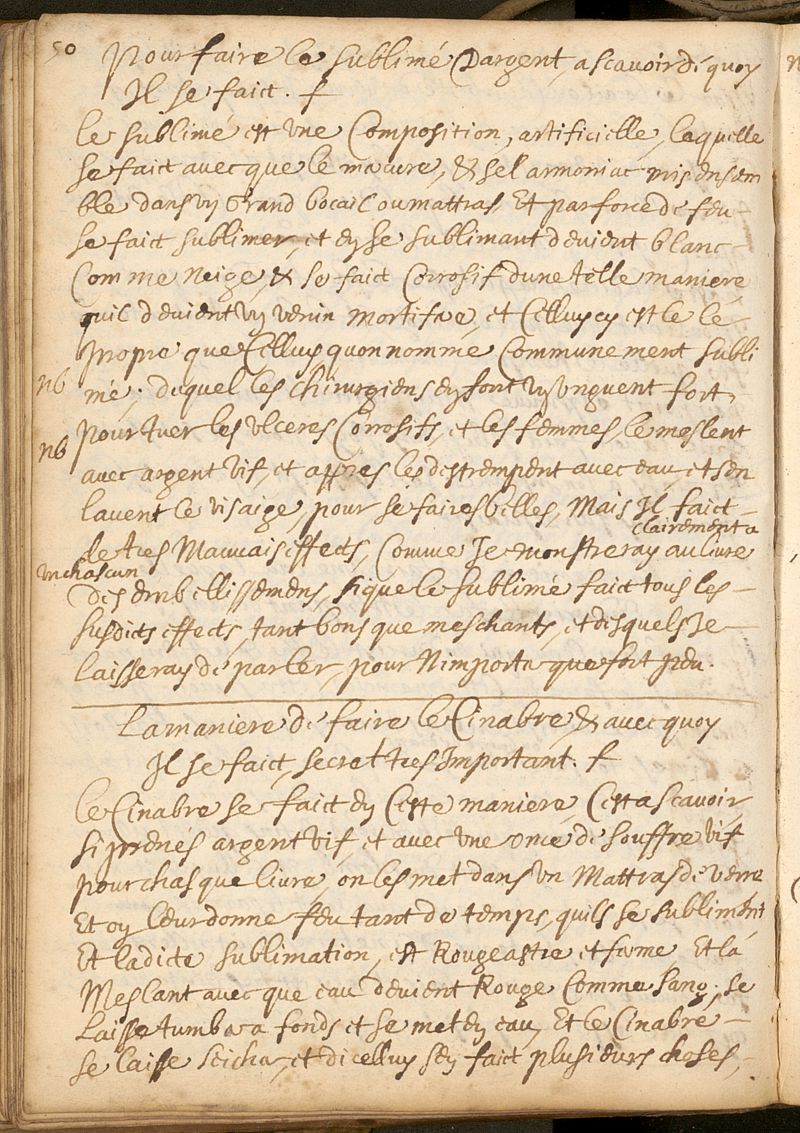 50
Pour faire le sublimé Dargent, ascavoir dé quoy
Il se faict. f
le sublimé est vne Composition, artificielle, laquelle
se faict avecque le mercure, & sel armoniac mis ensem
ble dans vy Grand bocal ou mattras Et par force de feu -
se faict sublimer, et ey se sublimant devient blanc -
Comme neige, & se faict Corrosif dune telle maniere
quil devient vy venin mortifere, et Celluy cy est le lé
propre que Celluy quon nomme Communement subli
nb mé, duquel les chirurgiens ey font vy vnguent fort,
pour tuer les vlceres Corrosifs, et les femmes, le meslent
nb
avec argent vif, et appres le destrempent avec eau, et sen
lavent le visaige, pour se faire belles, Mais Il faict -
de tres Mauvais effects, Comme Je monstreray au livre
clairement a
vn chascun
des embellissemens, si que le sublimé faict tous les -
susdicts effects, tant bons que meschants, et desquels Je -
laisseray dé parler, pour N'importer que fort peu.
La maniere dé faire le Cinabre, & avec quoy
Il se faict, secret tres Important. f
le Cinabre se faict ey Ceste maniere, Cest ascavoir
si prenés argent vif, et avec vne once dé souffre vif
pour chasque livre, on les met dans vn Mattras de verre
Et oy leur donne feu tant de temps, quils se subliment
Et ladicte sublimation, est Rougeastre et ferme Et la
Meslant avecque eau devient Rouge Comme sang, se
Laisse tumber a fonds et se met ey eau, Et le Cinabre -
se laisse seicher, et dicelluy sey faict plusieurs choses, -